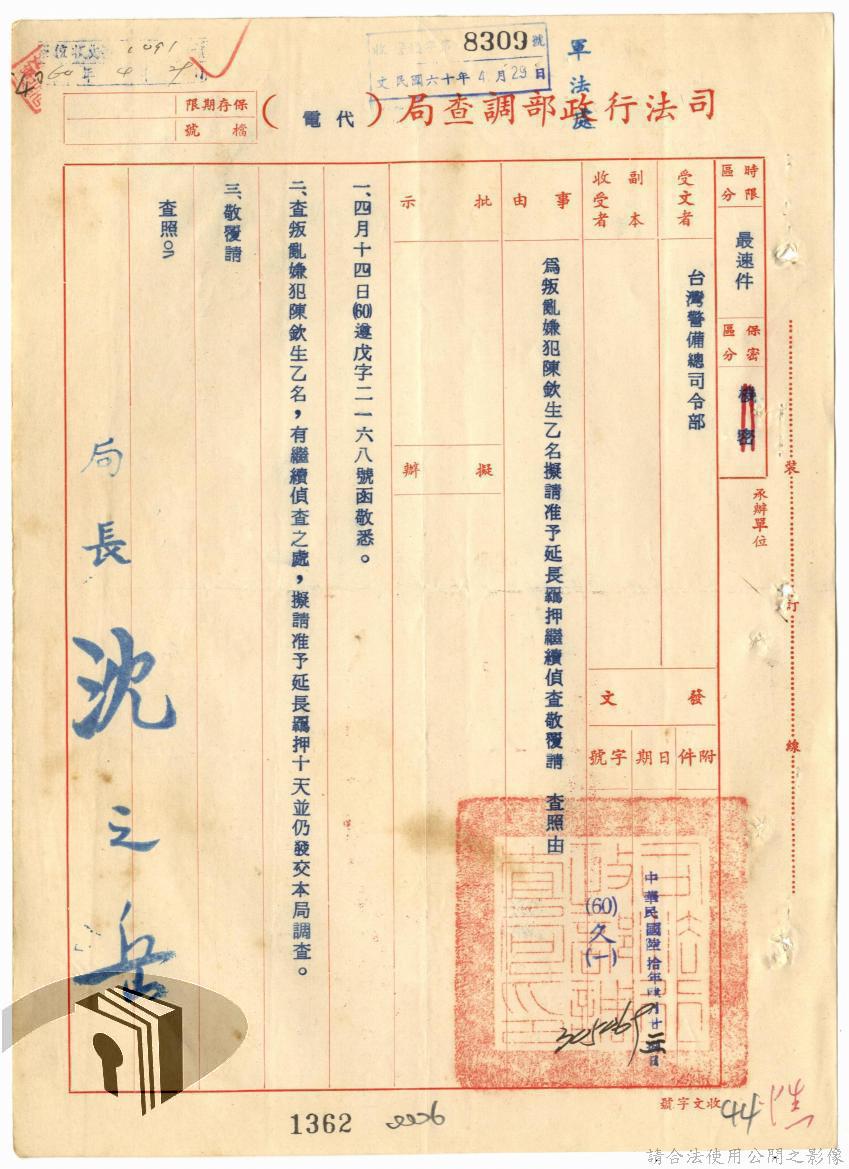 8309號
文民國六十年4月29日
軍法處
司法行政部調查局(代電)
保存期限
檔號
時限區分
最速件
保密區分
機密
受文者
台灣警備總司令部
副本收受者
發文
附件
日期
字號
中華民國陸拾年肆月廿二日
(60)久(一)
305269
事由
為叛亂嫌犯陳欽生乙名擬請准予延長羈押繼續偵查敬覆請 查照由
批示
擬辦
一、四月十四日(60)遵戊字二一六八號函敬悉。
二、查叛亂嫌犯陳欽生乙名,有繼續偵查之處,擬請准予延長羈押十天並仍發交本局調查。
三、敬覆請
查照。
局長 沈之岳
承辦單位
裝
訂
線
收文字號
44
1362
請合法使用公開之影像